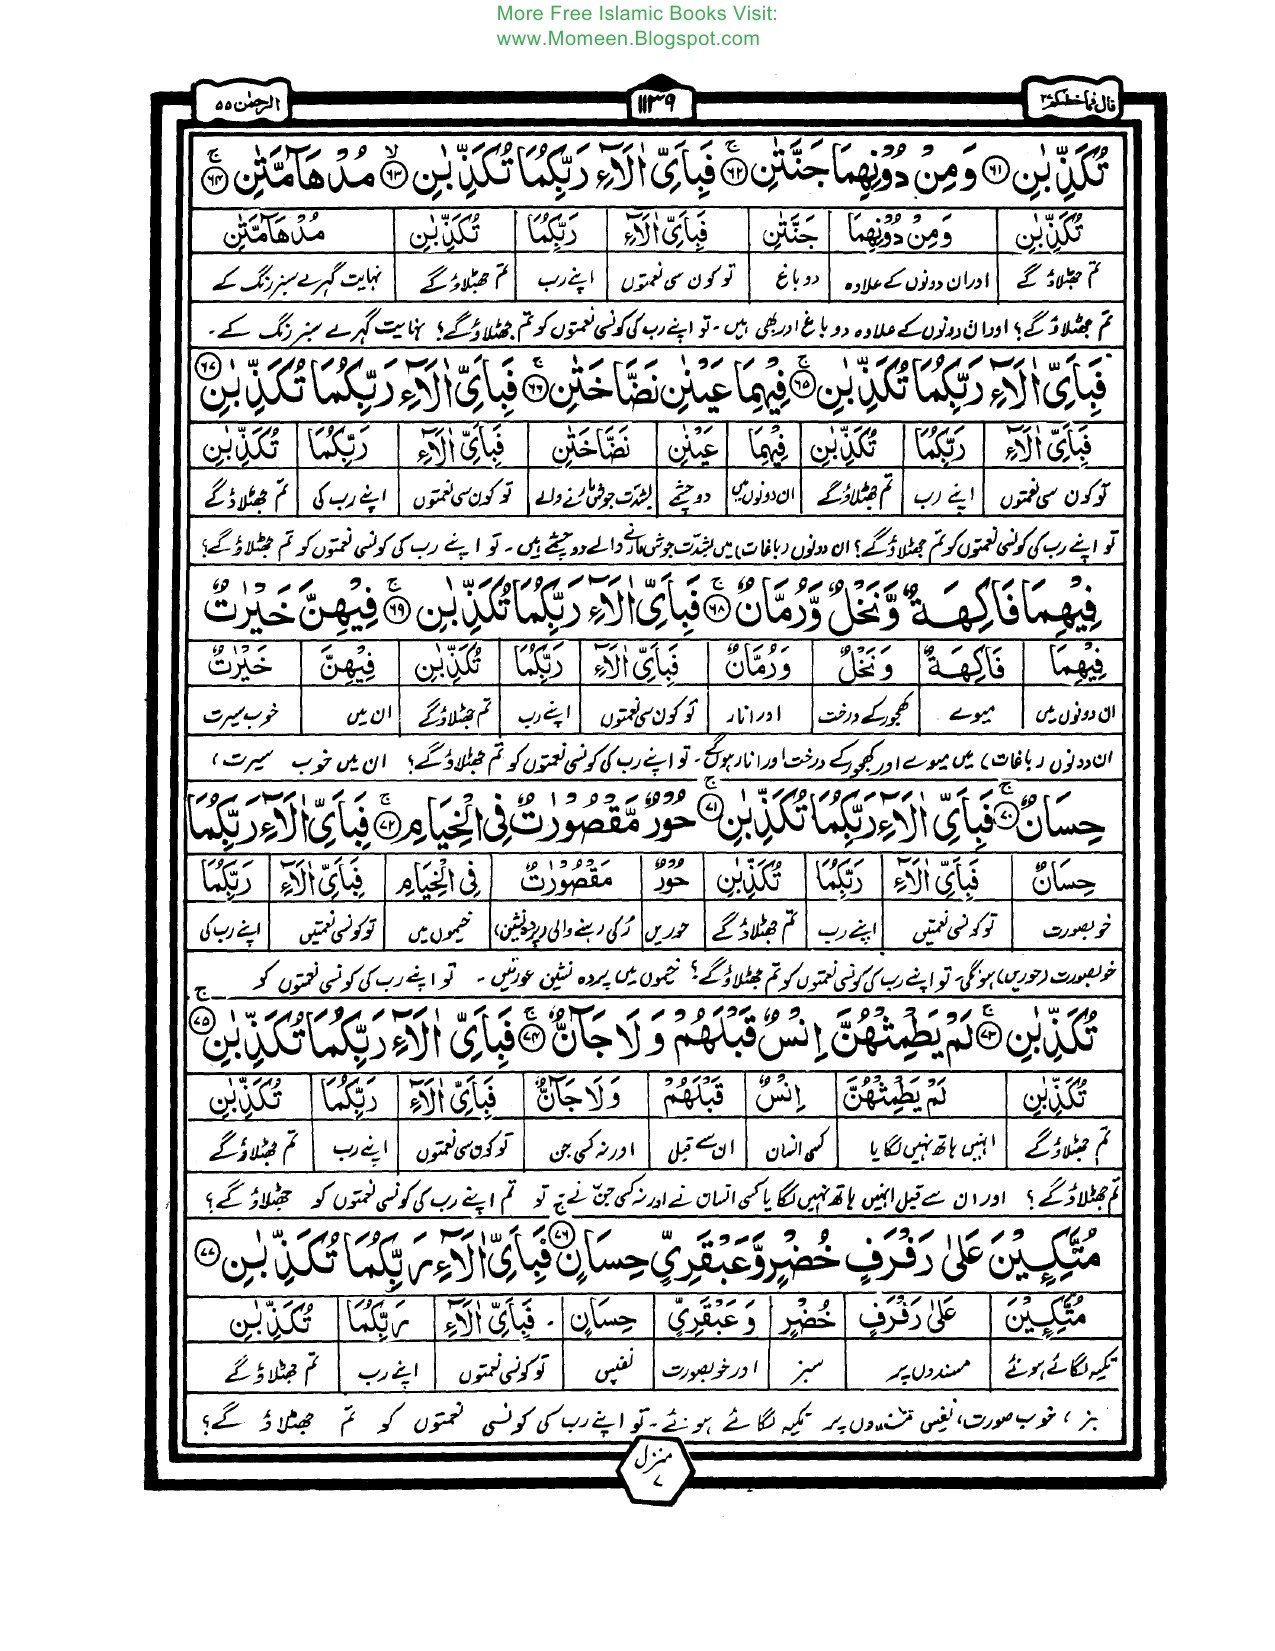 More Free Islamic Books Visit:
www.Momeen.Blogspot.com
قال فما خطبكم ٢٧
١١٣٩
الرحمٰن ٥٥
تُكَذِّبٰنِ ﴿٦١﴾ وَمِنْ دُوْنِهِمَا جَنَّتٰنِ ۚ﴿٦٢﴾ فَبِاَىِّ اٰلَآءِ رَبِّكُمَا تُكَذِّبٰنِ ۙ﴿٦٣﴾ مُدْهَآمَّتٰنِ ۚ﴿٦٤﴾
تُكَذِّبٰنِ وَمِنْ دُوْنِهِمَا جَنَّتٰنِ فَبِاَىِّ اٰلَآءِ رَبِّكُمَا تُكَذِّبٰنِ مُدْهَآمَّتٰنِ
تم جھٹلاؤ گے اور ان دونوں کے علاوہ دو باغ تو کون سی نعمتوں اپنے رب تم جھٹلاؤ گے نہایت گہرے سبز رنگ کے
تم جھٹلاؤ گے؟ اور ان دونوں کے علاوہ دو باغ اور بھی ہیں۔ تو اپنے رب کی کونسی نعمتوں کو تم جھٹلاؤ گے؟ نہایت گہرے سبز رنگ کے۔
فَبِاَىِّ اٰلَآءِ رَبِّكُمَا تُكَذِّبٰنِ ۚ﴿٦٥﴾ فِيْهِمَا عَيْنٰنِ نَضَّاخَتٰنِ ۚ﴿٦٦﴾ فَبِاَىِّ اٰلَآءِ رَبِّكُمَا تُكَذِّبٰنِ ﴿٦٧﴾
فَبِاَىِّ اٰلَآءِ رَبِّكُمَا تُكَذِّبٰنِ فِيْهِمَا عَيْنٰنِ نَضَّاخَتٰنِ فَبِاَىِّ اٰلَآءِ رَبِّكُمَا تُكَذِّبٰنِ
تو کون سی نعمتوں اپنے رب تم جھٹلاؤ گے ان دونوں میں دو چشمے بشدت جوش مارنے والے تو کون سی نعمتوں اپنے رب کی تم جھٹلاؤ گے
تو اپنے رب کی کونسی نعمتوں کو تم جھٹلاؤ گے؟ ان دونوں (باغات) میں بشدت جوش مارنے والے دو چشمے ہیں۔ تو اپنے رب کی کونسی نعمتوں کو تم جھٹلاؤ گے؟
فِيْهِمَا فَاكِهَةٌ وَّنَخْلٌ وَّرُمَّانٌ ۚ﴿٦٨﴾ فَبِاَىِّ اٰلَآءِ رَبِّكُمَا تُكَذِّبٰنِ ۚ﴿٦٩﴾ فِيْهِنَّ خَيْرٰتٌ
فِيْهِمَا فَاكِهَةٌ وَنَخْلٌ وَرُمَّانٌ فَبِاَىِّ اٰلَآءِ رَبِّكُمَا تُكَذِّبٰنِ فِيْهِنَّ خَيْرٰتٌ
ان دونوں میں میوے کھجور کے درخت اور انار تو کون سی نعمتوں اپنے رب تم جھٹلاؤ گے ان میں خوب سیرت
ان دونوں (باغات) میں میوے اور کھجور کے درخت اور انار ہونگے۔ تو اپنے رب کی کونسی نعمتوں کو تم جھٹلاؤ گے؟ ان میں خوب سیرت،
حِسَانٌ ۚ﴿٧٠﴾ فَبِاَىِّ اٰلَآءِ رَبِّكُمَا تُكَذِّبٰنِ ۚ﴿٧١﴾ حُوْرٌ مَّقْصُوْرٰتٌ فِى الْخِيَامِ ۚ﴿٧٢﴾ فَبِاَىِّ اٰلَآءِ رَبِّكُمَا
حِسَانٌ فَبِاَىِّ اٰلَآءِ رَبِّكُمَا تُكَذِّبٰنِ حُوْرٌ مَقْصُوْرٰتٌ فِى الْخِيَامِ فَبِاَىِّ اٰلَآءِ رَبِّكُمَا
خوبصورت تو کونسی نعمتیں اپنے رب تم جھٹلاؤ گے حوریں رُکی رہنے والی (پردہ نشین) خیموں میں تو کونسی نعمتیں اپنے رب کی
خوبصورت (حوریں) ہونگی۔ تو اپنے رب کی کونسی نعمتوں کو تم جھٹلاؤ گے؟ خیموں میں پردہ نشین عورتیں۔ تو اپنے رب کی کونسی نعمتوں کو
تُكَذِّبٰنِ ۚ﴿٧٣﴾ لَمْ يَطْمِثْهُنَّ اِنْسٌ قَبْلَهُمْ وَلَا جَآنٌّ ۚ﴿٧٤﴾ فَبِاَىِّ اٰلَآءِ رَبِّكُمَا تُكَذِّبٰنِ ۚ﴿٧٥﴾
تُكَذِّبٰنِ لَمْ يَطْمِثْهُنَّ اِنْسٌ قَبْلَهُمْ وَلَا جَآنٌّ فَبِاَىِّ اٰلَآءِ رَبِّكُمَا تُكَذِّبٰنِ
تم جھٹلاؤ گے انہیں ہاتھ نہیں لگایا کسی انسان ان سے قبل اور نہ کسی جن تو کون سی نعمتوں اپنے رب تم جھٹلاؤ گے
تم جھٹلاؤ گے؟ اور ان سے قبل انہیں ہاتھ نہیں لگایا کسی انسان نے اور نہ کسی جن نے تو تم اپنے رب کی کونسی نعمتوں کو جھٹلاؤ گے؟
مُتَّكِـِٕيْنَ عَلٰى رَفْرَفٍ خُضْرٍ وَّعَبْقَرِىٍّ حِسَانٍ ۚ﴿٧٦﴾ فَبِاَىِّ اٰلَآءِ رَبِّكُمَا تُكَذِّبٰنِ ﴿٧٧﴾
مُتَّكِـِٕيْنَ عَلٰى رَفْرَفٍ خُضْرٍ وَعَبْقَرِىٍّ حِسَانٍ فَبِاَىِّ اٰلَآءِ رَبِّكُمَا تُكَذِّبٰنِ
تکیہ لگائے ہوئے مسندوں پر سبز اور خوبصورت نفیس تو کونسی نعمتوں اپنے رب تم جھٹلاؤ گے
سبز، خوب صورت، نفیس مسندوں پر تکیہ لگائے ہوئے۔ تو اپنے رب کی کونسی نعمتوں کو تم جھٹلاؤ گے؟
منزل ٧